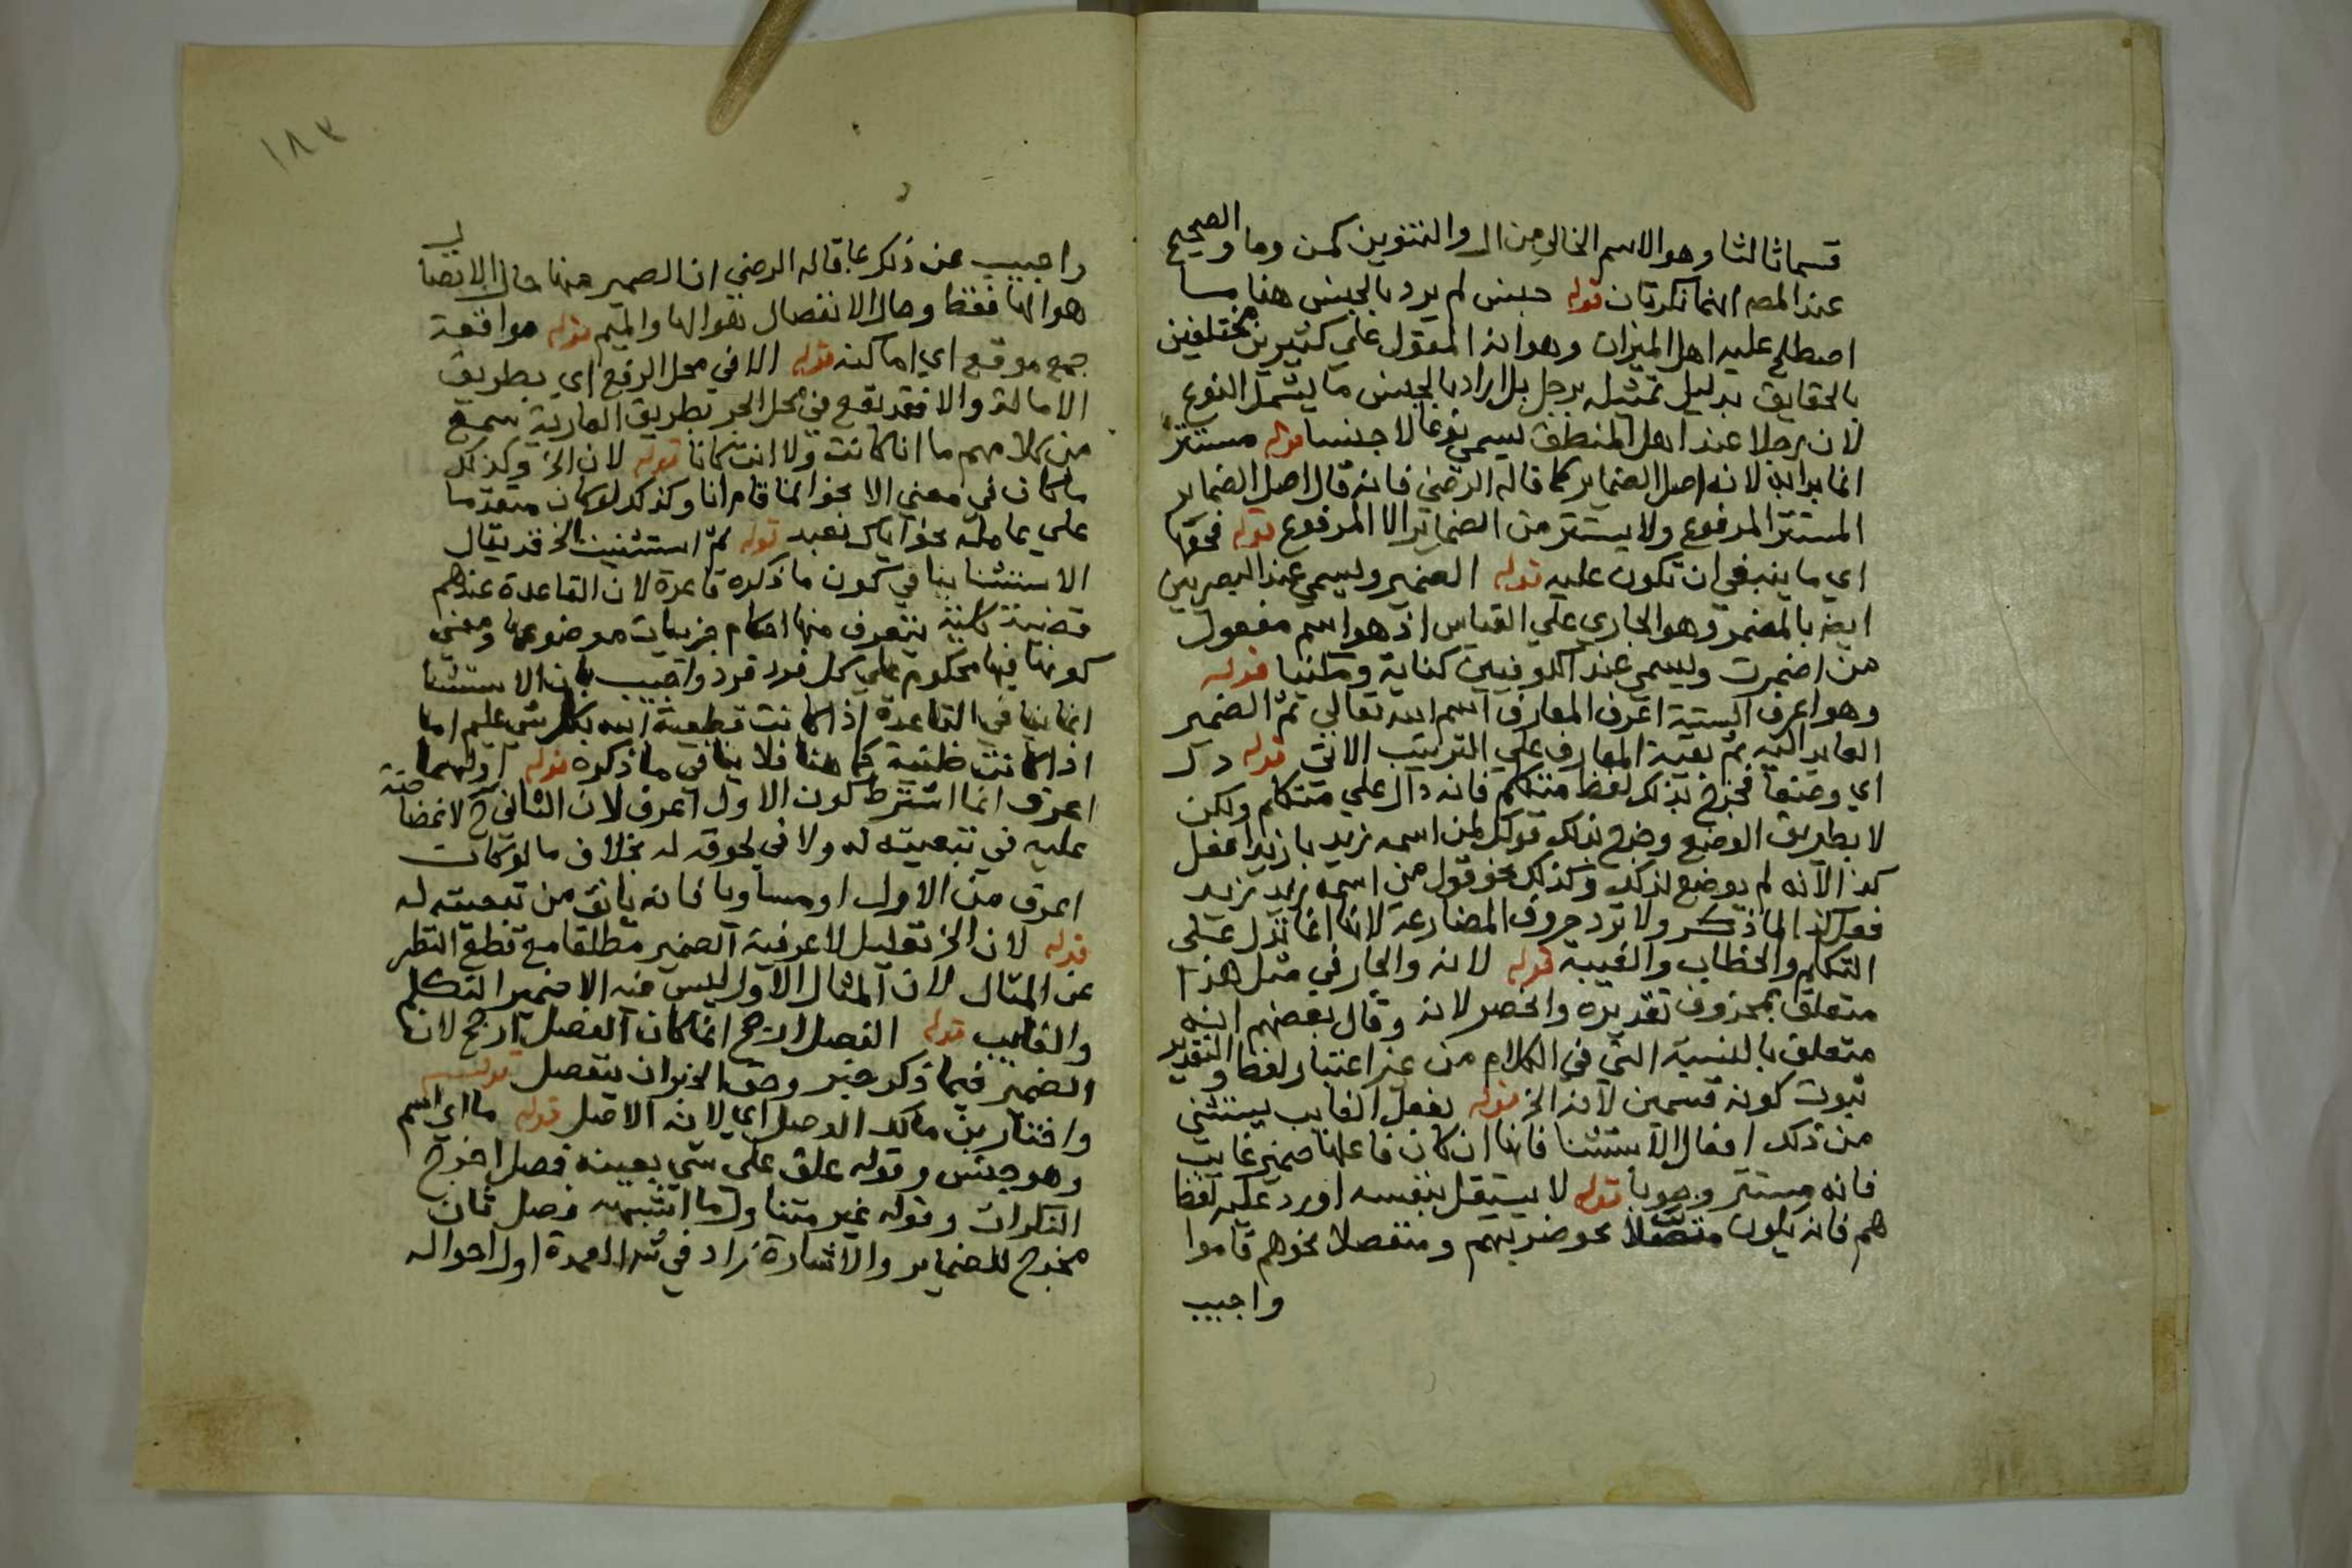 قسما ثالثا وهو الاسم الخالي من ال والتنوين كمن وما والصحيح
عند المص انهما نكرتان قوله جنس لم يرد بالجنس هنا ما
اصطلح عليه اهل الميزان وهو انه المقول علي كثيرين مختلفين
بالحقايق بدليل تمثيله برجل بل اراد بالجنس ما يشمل النوع
لان رجلا عند اهل المنطق يسمي نوعا لا جنسا قوله مستتر
انما بدا به لانه اصل الضماير كما قاله الرضي فانه قال اصل الضماير
المستتر المرفوع ولا يستتر من الضماير الا المرفوع قوله فحقها
اي ما ينبغي ان تكون عليه قوله الضمير ويسمي عند البصريين
ايضا بالمضمر وهو الجاري علي القياس اذ هو اسم مفعول
من اضمرت ويسمى عند الكوفيين كناية ومكنيا قوله
وهو اعرف الستة اعرف المعارف اسم الله تعالي ثم الضمير
العايد اليه ثم بقية المعارف علي الترتيب الاتي قوله دل
اي وضعا فخرج بذلك لفظ متكلم فانه دال علي متكلم ولكن
لا بطريق الوضع وخرج بذلك قولك لمن اسمه زيد يا زيد افعل
كذا لانه لم يوضع لذلك وكذلك نحو قول من اسمه زيد زيد
فعل كذا لما ذكر ولا ترد حروف المضارعة لانها انما تدل على
التكلم والخطاب والغيبة قوله لانه والجار في مثل هذا
متعلق بمحذوف تقديره وانحصر لانه وقال بعضهم انه
متعلق بالنسبة التي في الكلام من غير اعتبار لفظ والتقدير
ثبوت كونه قسمين لانه الخ قوله بفعل الغايب يستثنى
من ذلك افعال الاستثنا فانها ان كان فاعلها ضمير غايب
فانه مستتر وجوبا قوله لا يستقل بنفسه اورد عليه لفظ
هم فانه يكون متصلا نحو ضربهم ومنفصلا نحو هم قاموا
واجيب
١٨٣
واجيب عن ذلك بما قاله الرضي ان الضمير هنا حال الاتصال
هو الها فقط وحال الانفصال هو الها والميم قوله مواقعة
جمع موقع اي اماكنه قوله الا في محل الرفع اي بطريق
الاصالة والا فقد يقع في محل الجر بطريق العارية سمع
من كلامهم ما انا كانت ولا انت كانا قوله لان الخ وكذلك
ما كان في معني الا نحو انما قام انا وكذلك لو كان متقدما
علي عامله نحو اياك نعبد قوله ثم استثنيت الخ قد يقال
الاستثنا ينافي كون ما ذكره قاعدة لان القاعدة عندهم
قضية كلية يتعرف منها احكام جزييات موضوعها ومعني
كونها فيها محكوم علي كل فرد فرد واجيب بان الاستثنا
انما ينافي القاعدة اذا كانت قطعية الله بكل شي عليم اما
اذا كانت ظنية كما هنا فلا ينافي ما ذكره قوله اولهما
اعرف انما اشترط كون الاول اعرف لان الثاني ح لا غضاضة
عليه في تبعيته له ولا في لحوقه له بخلاف ما لو كان
اعرف من الاول او مساويا فانه يانف من تبعيته له
قوله لان الخ تعليل لاعرفية الضمير مطلقا مع قطع النظر
عن المثال لان المثال الاول ليس فيه الا ضمير التكلم
والغايب قوله الفصل ارجح انما كان الفصل ارجح لان
الضمير فيما ذكر خبر وحق الخبر ان ينفصل قوله
واختار بن مالك الوصل اي لانه الاصل قوله ما اي اسم
وهو جنس وقوله علق على شي بعينه فصل اخرج
النكرات وقوله غير متناول ما اشبهه فصل ثان
مخرج للضماير والاشارة زاد في شرح العمدة اول احواله